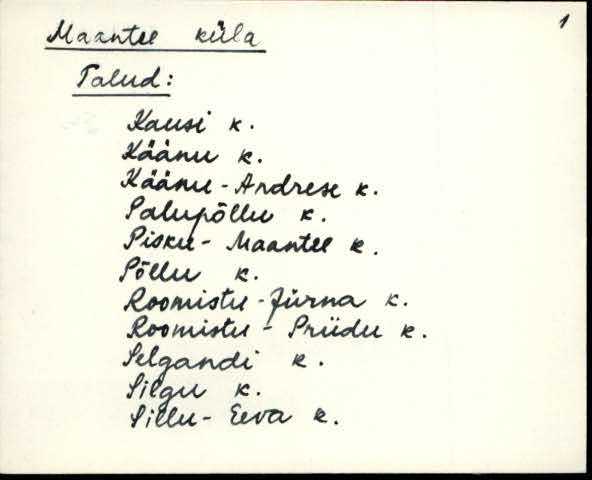 1
Maantee küla
Talud:
Kausi k.
Käänu k.
Käänu-Andrese k.
Palupõllu k.
Pisku-Maantee k.
Põllu k.
Roomistu-Jürna k.
Roomistu-Priidu k.
Selgandi k.
Silgu k.
Sillu-Eeva k.